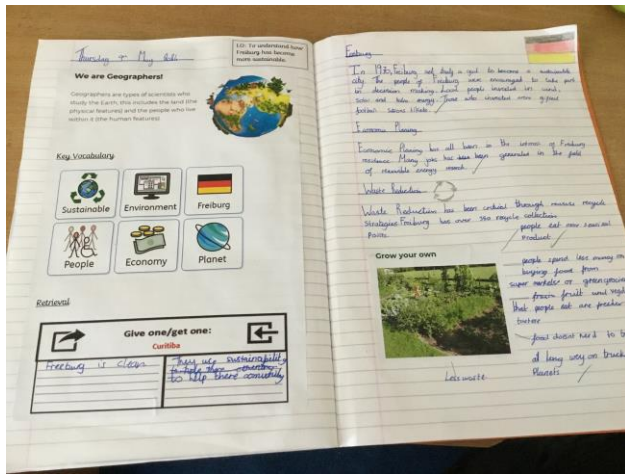 Thursday
May
LO: To understand how
Freiburg has become
more sustainable.
We are Geographers!
Geographers are types of scientists who
study the Earth, this includes the land (the
physical features) and the people who live
within it (the human features)
Key Vocabulary
Sustainable
Environment
Freiburg
People
Economy
Planet
Retrieval
Give one/get one:
Curitiba
Freeburg is clean
They use sustainability
to help there
to help there comunity
Freiburg
In Freiburg set a goal to become a sustainable
city. The people of Freiburg were encouraged to take part
in decision making. people invested in wind,
Solar and energy. Those who invested were given
football tickets.
Economic Planing
Economic Planing has all been in the intrest of Freiburg
Many jobs has been generated in the field
of renewable energy
Waste Reduction
Waste Reduction has been through recycle
strategies Freiburg has over 350 recycle collection
Points.
people eat more seasonal
product
Grow your own
people spend less money on
buying from
super markets or
fruit and
that people eat are fresher
food doesnt need to b
all long way on truck
Planets
Less waste